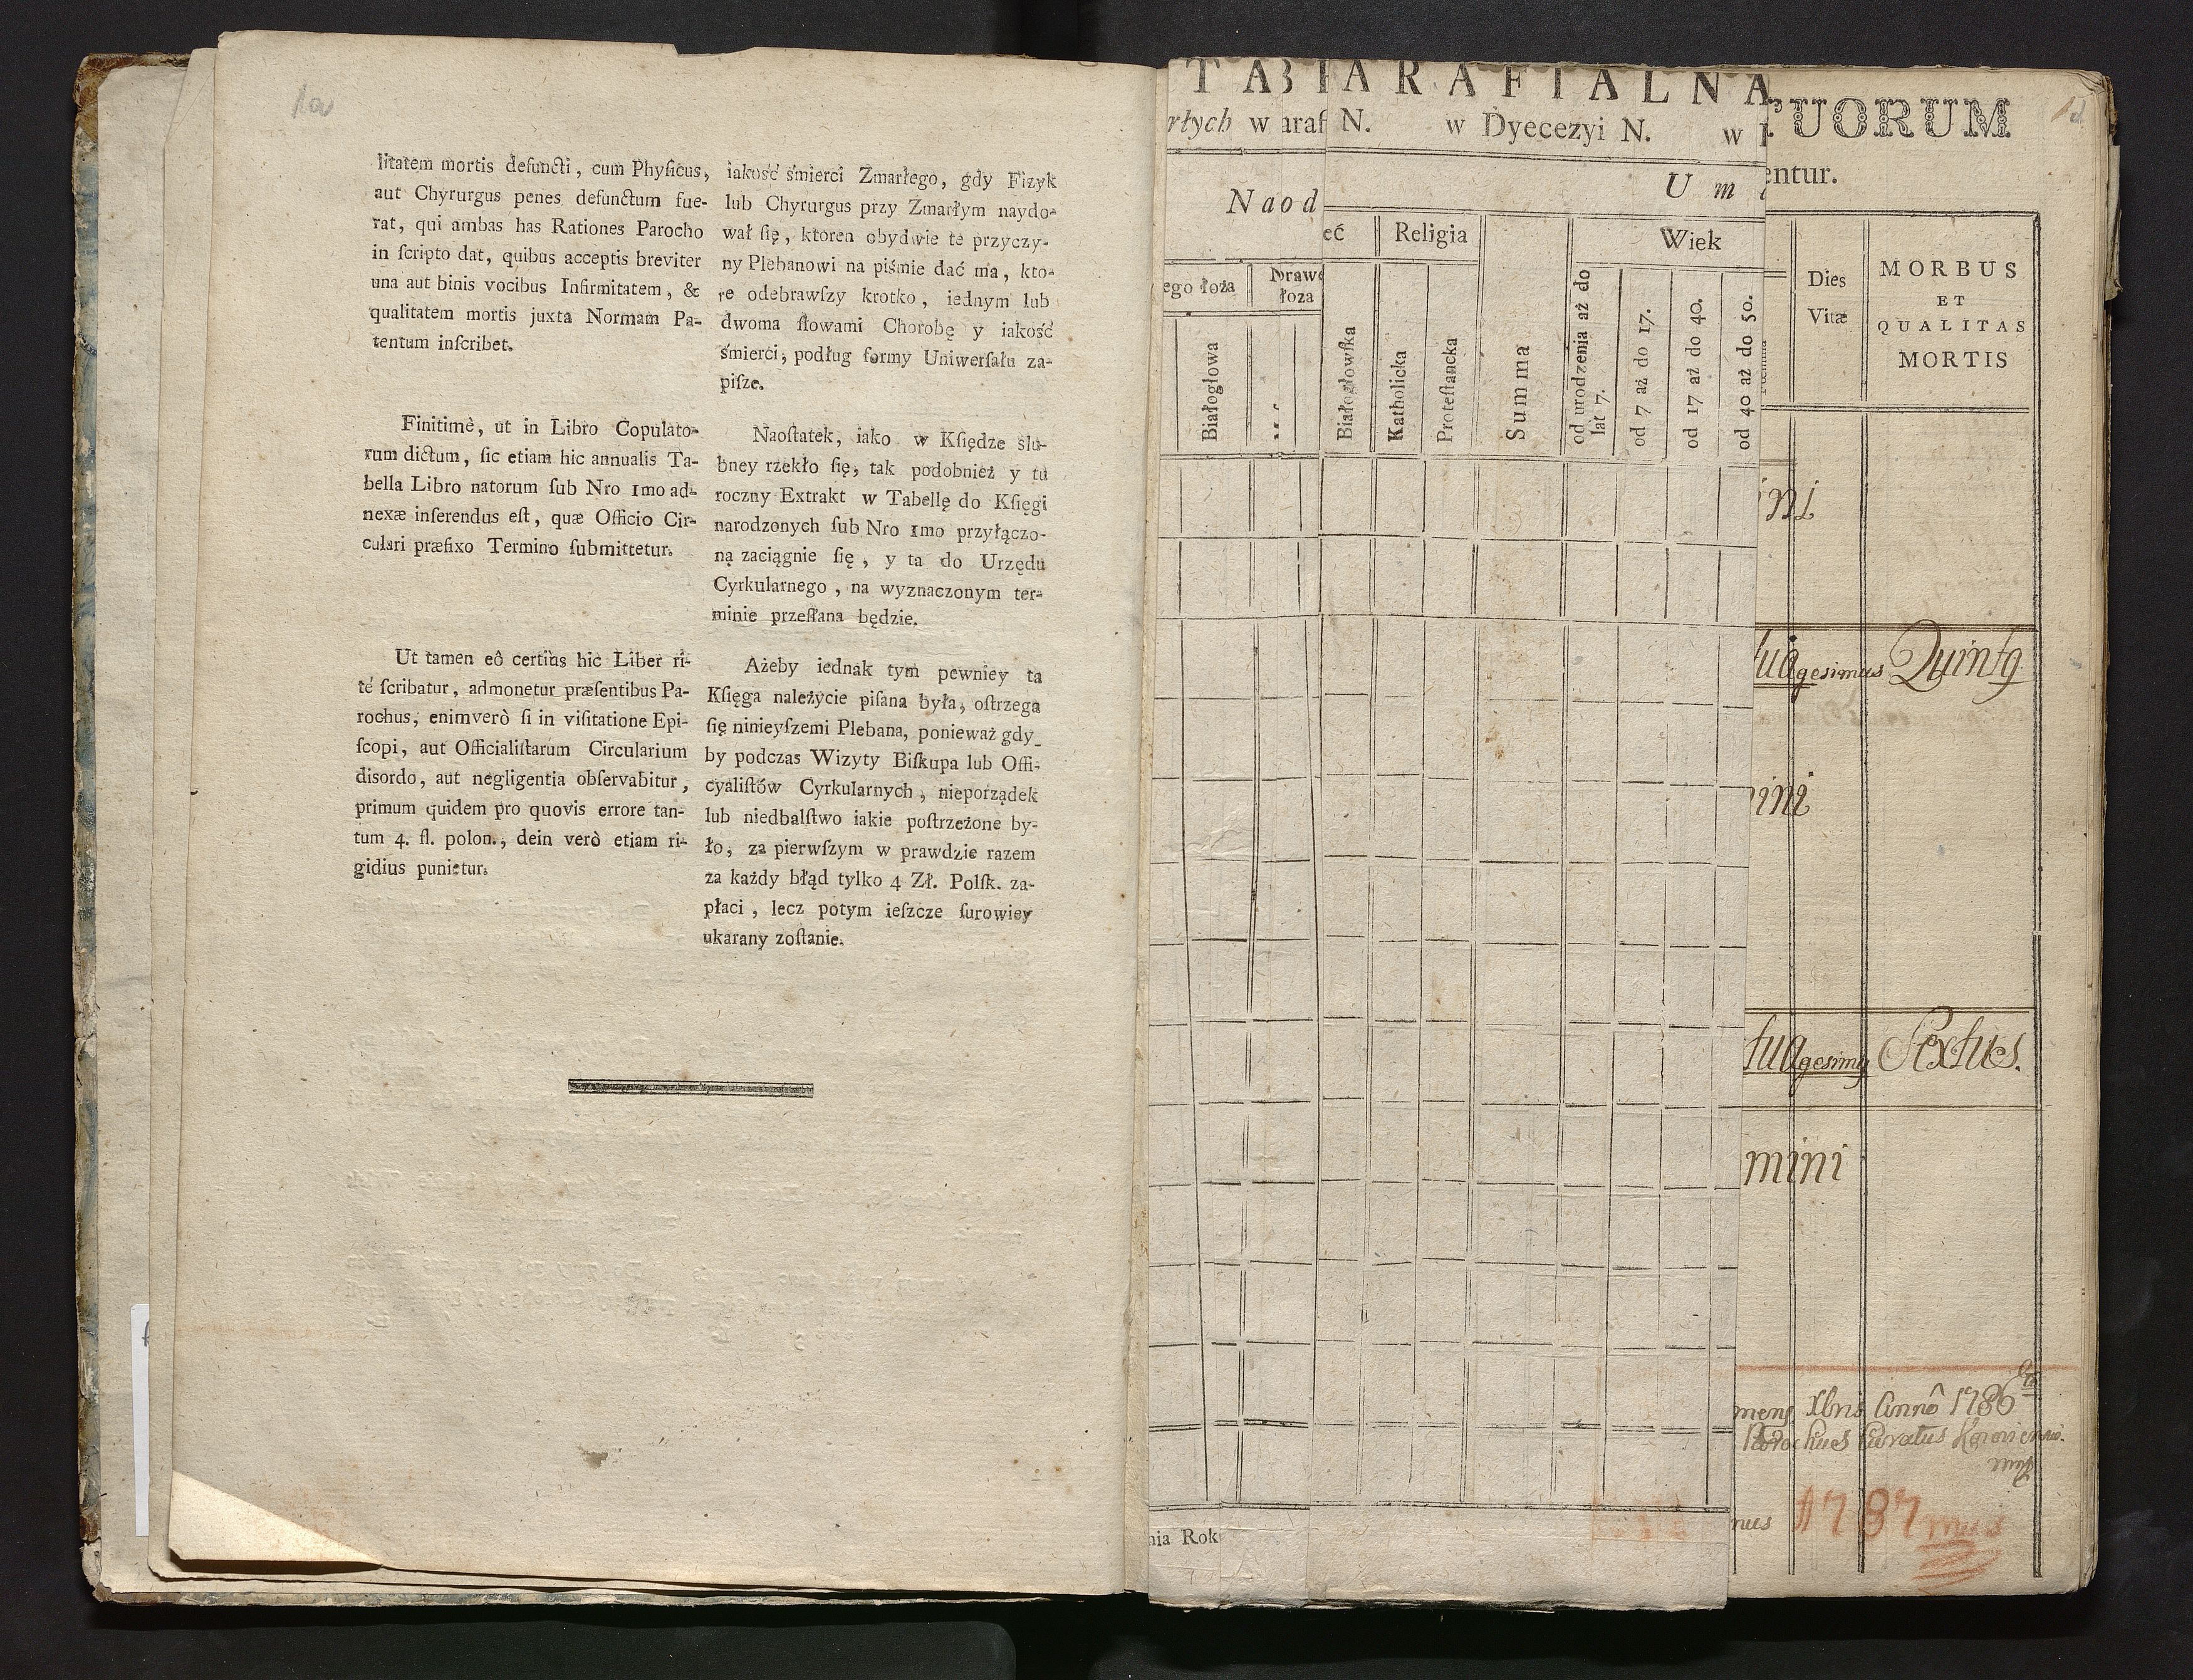 litatem mortis defuncti, cum Phyſicus,
aut Chyrurgus penes defunctum fue-
rat, qui ambas has Rationes Parocho
in ſcripto dat, quibus acceptis breviter
una aut binis vocibus Infirmitatem, &
qualitatem mortis juxta Normam Pa-
tentum inſcribet.
Finitimè, ut in Libro Copulato-
rum dictum, ſic etiam hic annualis Ta-
bella Libro natorum ſub Nro 1mo ad-
nexæ inſerendus eſt, quæ Officio Cir-
culari præfixo Termino ſubmittetur.
Ut tamen eô certiùs hic Liber ri-
tè ſcribatur, admonetur præſentibus Pa-
rochus, enimverò ſi in viſitatione Epi-
ſcopi, aut Officialiſtarum Circularium
disordo, aut negligentia obſervabitur,
primum quidem pro quovis errore tan-
tum 4. fl. polon., dein verò etiam ri-
gidius punietur.
iakość śmierci Zmarłego, gdy Fizyk
lub Chyrurgus przy Zmarłym naydo-
wał się, ktoren obydwie te przyczy-
ny Plebanowi na piśmie dać ma, kto-
re odebrawſzy krotko, iednym lub
dwoma ſłowami Chorobę y iakość
śmierci, podług formy Uniwerſału za-
piſze.
Naoſtatek, iako w Kſiędze ślu-
bney rzekło ſię, tak podobnież y tu
roczny Extrakt w Tabellę do Kſięgi
narodzonych ſub Nro 1mo przyłączo-
ną zaciągnie ſię, y ta do Urzędu
Cyrkularnego, na wyznaczonym ter-
minie przeſłana będzie.
Ażeby iednak tym pewniey ta
Kſięga należycie piſana była, oſtrzega
ſię ninieyſzemi Plebana, ponieważ gdy_
by podczas Wizyty Biſkupa lub Offi-
cyaliſtów Cyrkularnych, nieporządek
lub niedbalſtwo iakie poſtrzeżone by-
ło, za pierwſzym w prawdzie razem
za każdy błąd tylko 4 Zł. Polſk. za-
płaci, lecz potym ieſzcze ſurowiey
ukarany zoſtanie.
TAB
rłych w
Naod
ego łoża
Prawe
łoża
Białogłowa
nia Rok
ARAFIALNA
araf N. w Dyecezyi N. w
Um
eć
Religia
Wiek
Białogłowſka
Katholicka
Proteſtancka
Summa
od urodzenia aż do
lat 7.
od 7 aż do 17.
od 17 aż do 40.
od 40 aż do 50.
TUORUM
entur.
Dies
Vitæ
MORBUS
ET
QUALITAS
MORTIS
ini
tuagesimus Quintg
mini
tuagesimg Sextus.
mini
mens Xbris Annô 1786
Parochus Curatus
mp
nus 1787mus